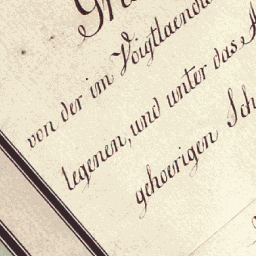 von der im Voigtlaendi
legenen, und unter das A
gehoerigen Sch